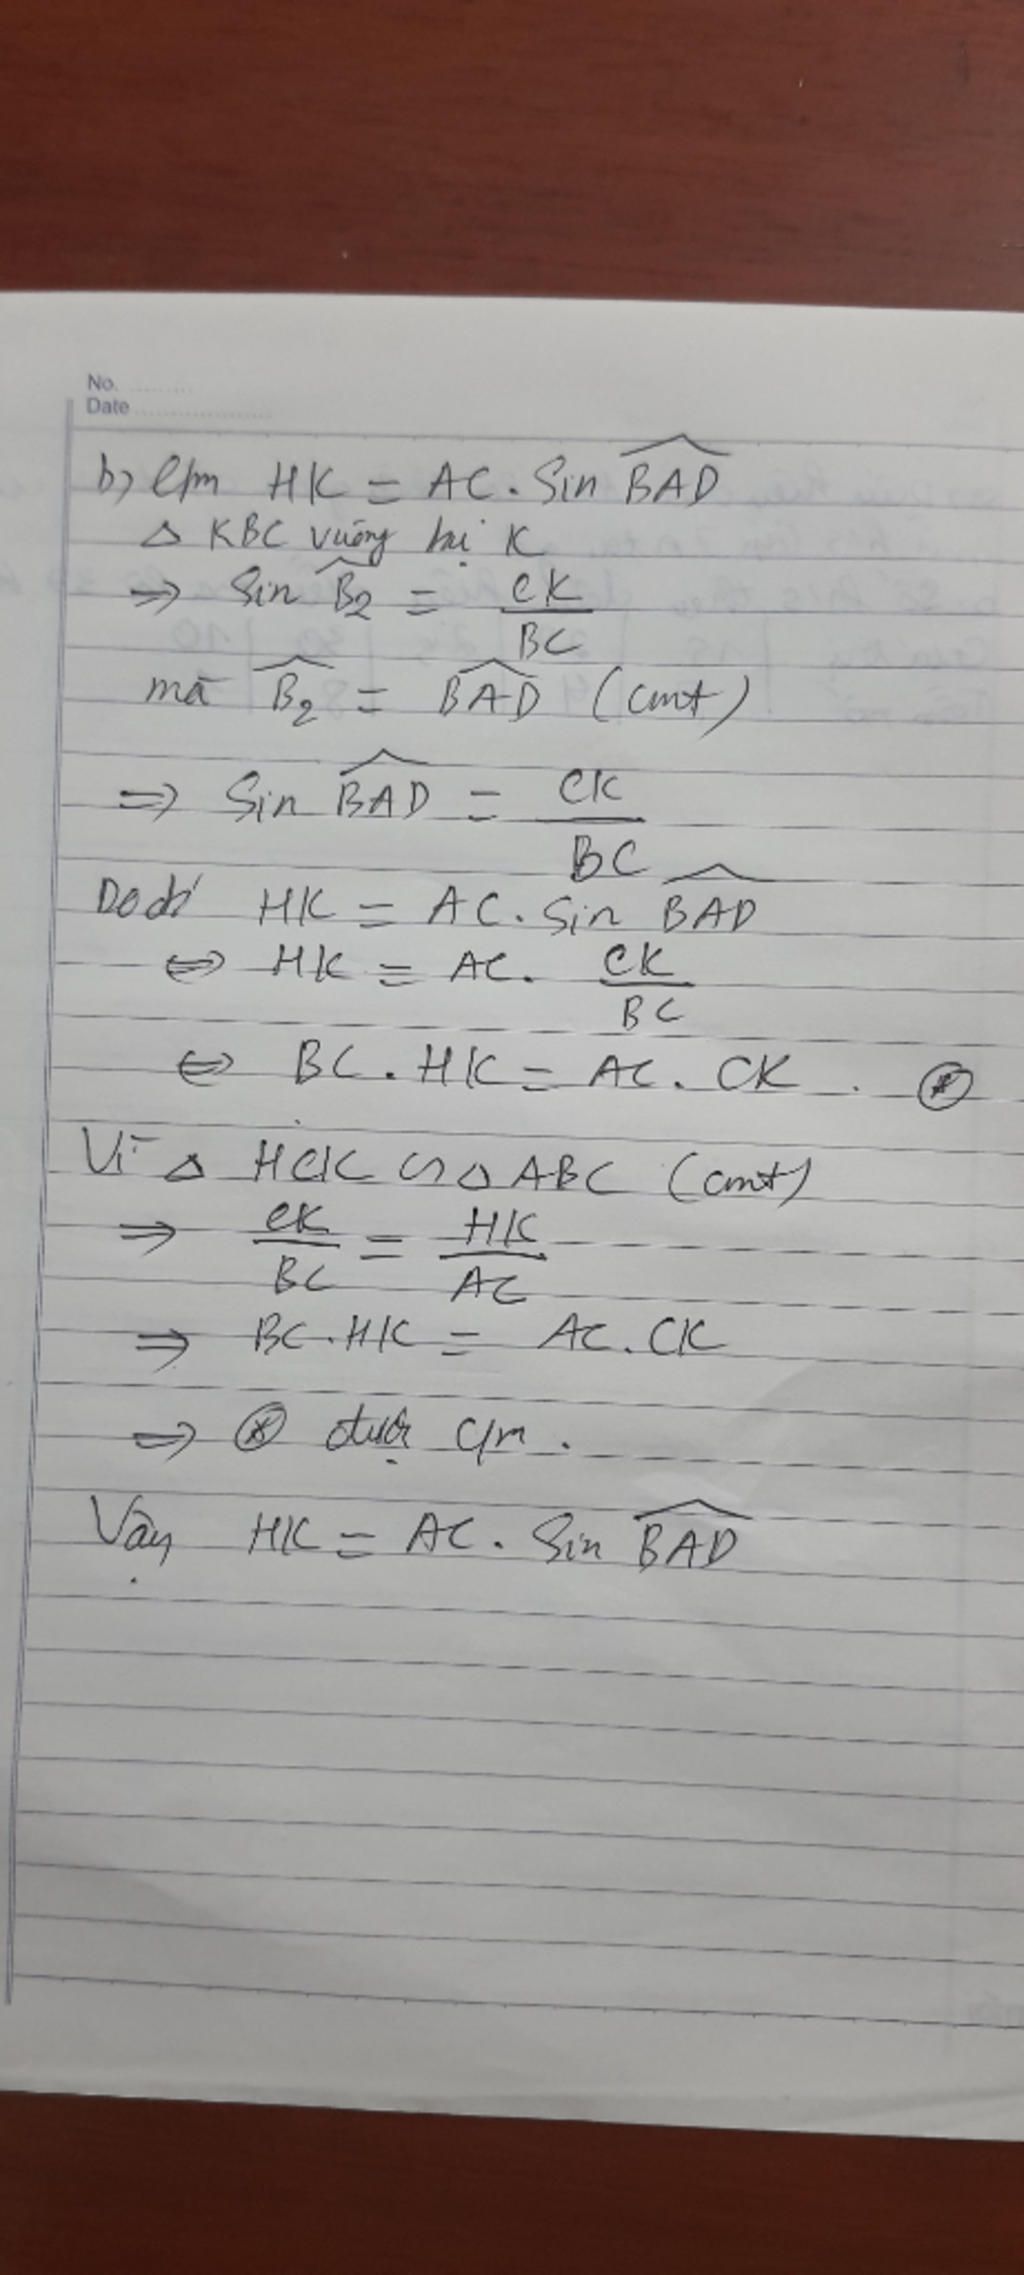 No. ..........
Date ....................
b) C/m HK = AC . Sin \widehat{BAD}
△ KBC vuông tại K
⇒ Sin \widehat{B_2} = \frac{CK}{BC}
mà \widehat{B_2} = \widehat{BAD} (cmt)
⇒ Sin \widehat{BAD} = \frac{CK}{BC}
Do đó HK = AC . Sin \widehat{BAD}
⇔ HK = AC . \frac{CK}{BC}
⇔ BC . HK = AC . CK . ⊛
Vì △ HCK ∽ △ ABC (cmt)
⇒ \frac{CK}{BC} = \frac{HK}{AC}
⇒ BC . HK = AC . CK
⇒ ⊛ được c/m .
Vậy HK = AC . Sin \widehat{BAD}